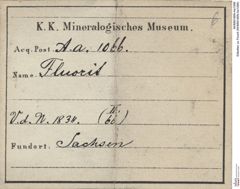 6
K. K. Mineralogisches Museum.
Acq. Post. A. a. 1066.
Name: Fluorit
V. d. N. 1834. (IV. 66)
Fundort: Sachsen